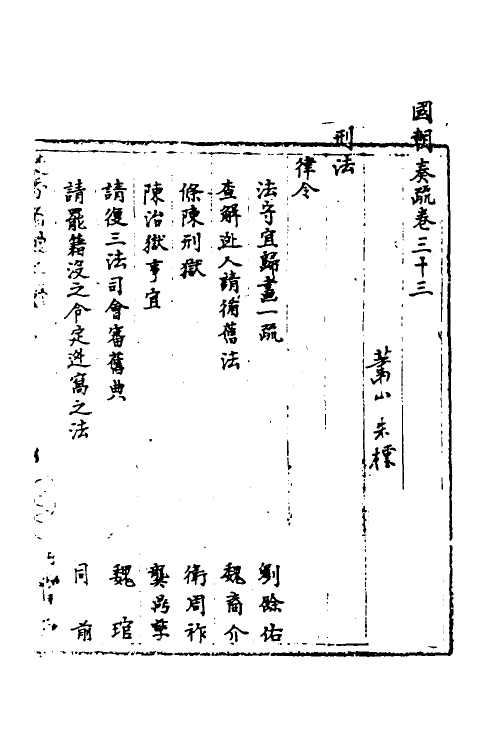 國朝奏疏卷三十三
蕭山 朱橒
刑法
律令
法守宜歸畫一疏 劉餘佑
查解逃人請循舊法 魏裔介
條陳刑獄 衛周祚
陳治獄事宜 龔鼎孳
請復三法司會審舊典 魏琯
請罷籍沒之令定逃窩之法 同前